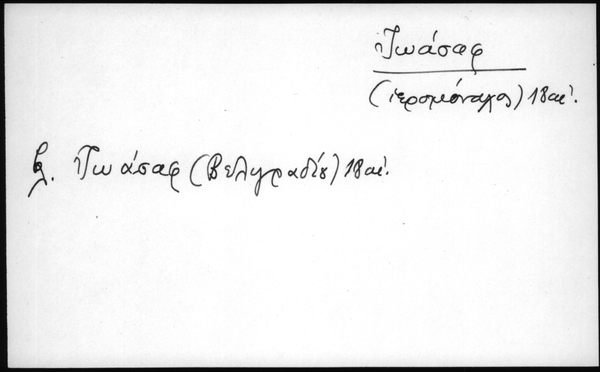 Ἰωάσαφ
(ἱερομόναχος) 18 αἰ.
βλ. Ἰωάσαφ (Βελιγραδίου) 18 αἰ.